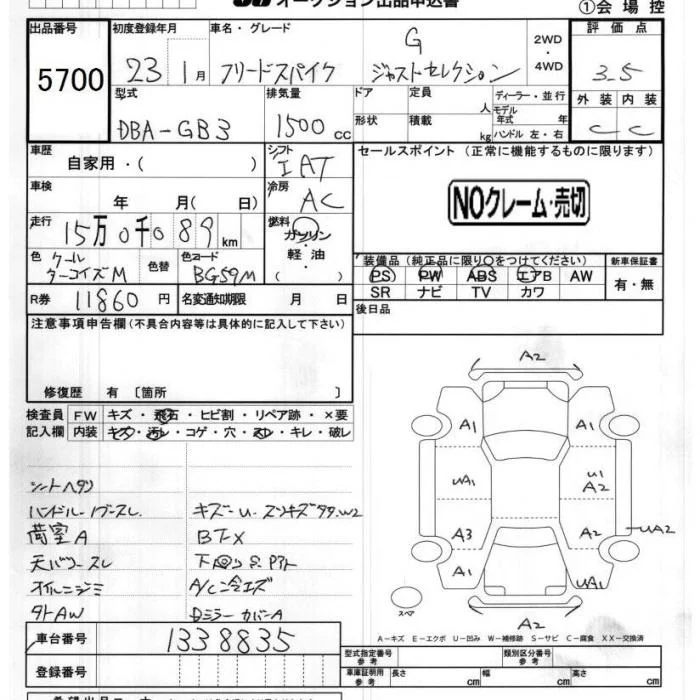 オークション出品申込書
①会場控
出品番号
5700
初度登録年月
23 1月
車名・グレード
G
フリードスパイク ジャストセレクション
2WD
・
4WD
評価点
3.5
型式
DBA-GB3
排気量
1500 cc
ドア
定員
人
形状
積載
kg
ディーラー・並行
モデル年式 年
ハンドル 左・右
外装 内装
C C
車歴
自家用・( )
シフト
IAT
車検
年 月( 日)
冷房
AC
走行
15万0千089km
燃料
ガソリン・軽油
( )
色
クールターコイズM
色替
色コード
BG59M
R券 11860円
名変通知期限 月 日
セールスポイント(正常に機能するものに限ります)
NOクレーム・売切
装備品(純正品に限り○をつけてください)
PS PW ABS エアB AW
SR ナビ TV カワ
新車保証書
有・無
後日品
注意事項申告欄(不具合内容等は具体的に記入して下さい)
修復歴 有 〔箇所 〕
検査員記入欄
FW キズ・飛石・ヒビ割・リペア跡・×要
内装 キズ・汚レ・コゲ・穴・スレ・キレ・破レ
シートヘタリ
荷室A
オイルニジミ
BTX
A/C冷エズ
DミラーカバーA
A2
A1
A1
UA1
U1
A2
A3
A2
UA2
A1
UA1
A2
スペア
A-キズ E-エクボ U-凹み W-補修跡 S-サビ C-腐食 XX-交換済
車台番号 1338835
登録番号
型式指定番号
参考
類別区分番号
参考
車庫証明用
参考
長さ cm
幅 cm
高さ cm